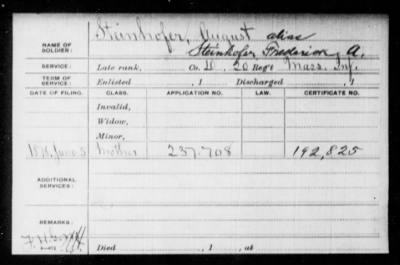 Steinhofer, August alias
NAME OF SOLDIER: Steinhofer, Frederick A.
SERVICE: Late rank, Co. D, 20 Reg't Mass. Inf.
TERM OF SERVICE: Enlisted , 1 Discharged , 1
DATE OF FILING. CLASS. APPLICATION NO. LAW. CERTIFICATE NO.
Invalid,
Widow,
Minor,
June 5 Mother 237.708 192,825
ADDITIONAL SERVICES:
REMARKS:
Died , 1 , at